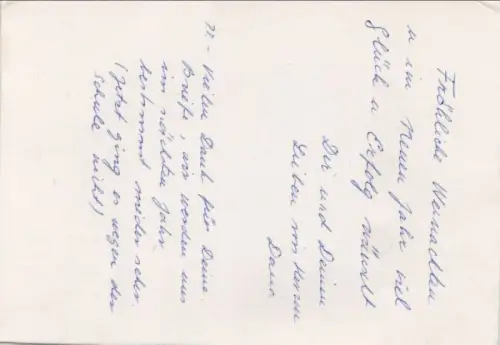 Fröhliche Weinachten
u im Neuen Jahr viel
Glück u Erfolg wünscht
Dir und Deinen
Lieben von Herzen
Dana
Vielen Dank für Deine
Briefe, wir werden uns
im nächsten Jahr
bestimmt wieder sehen
(jetzt ging es wegen der
Schule nicht)